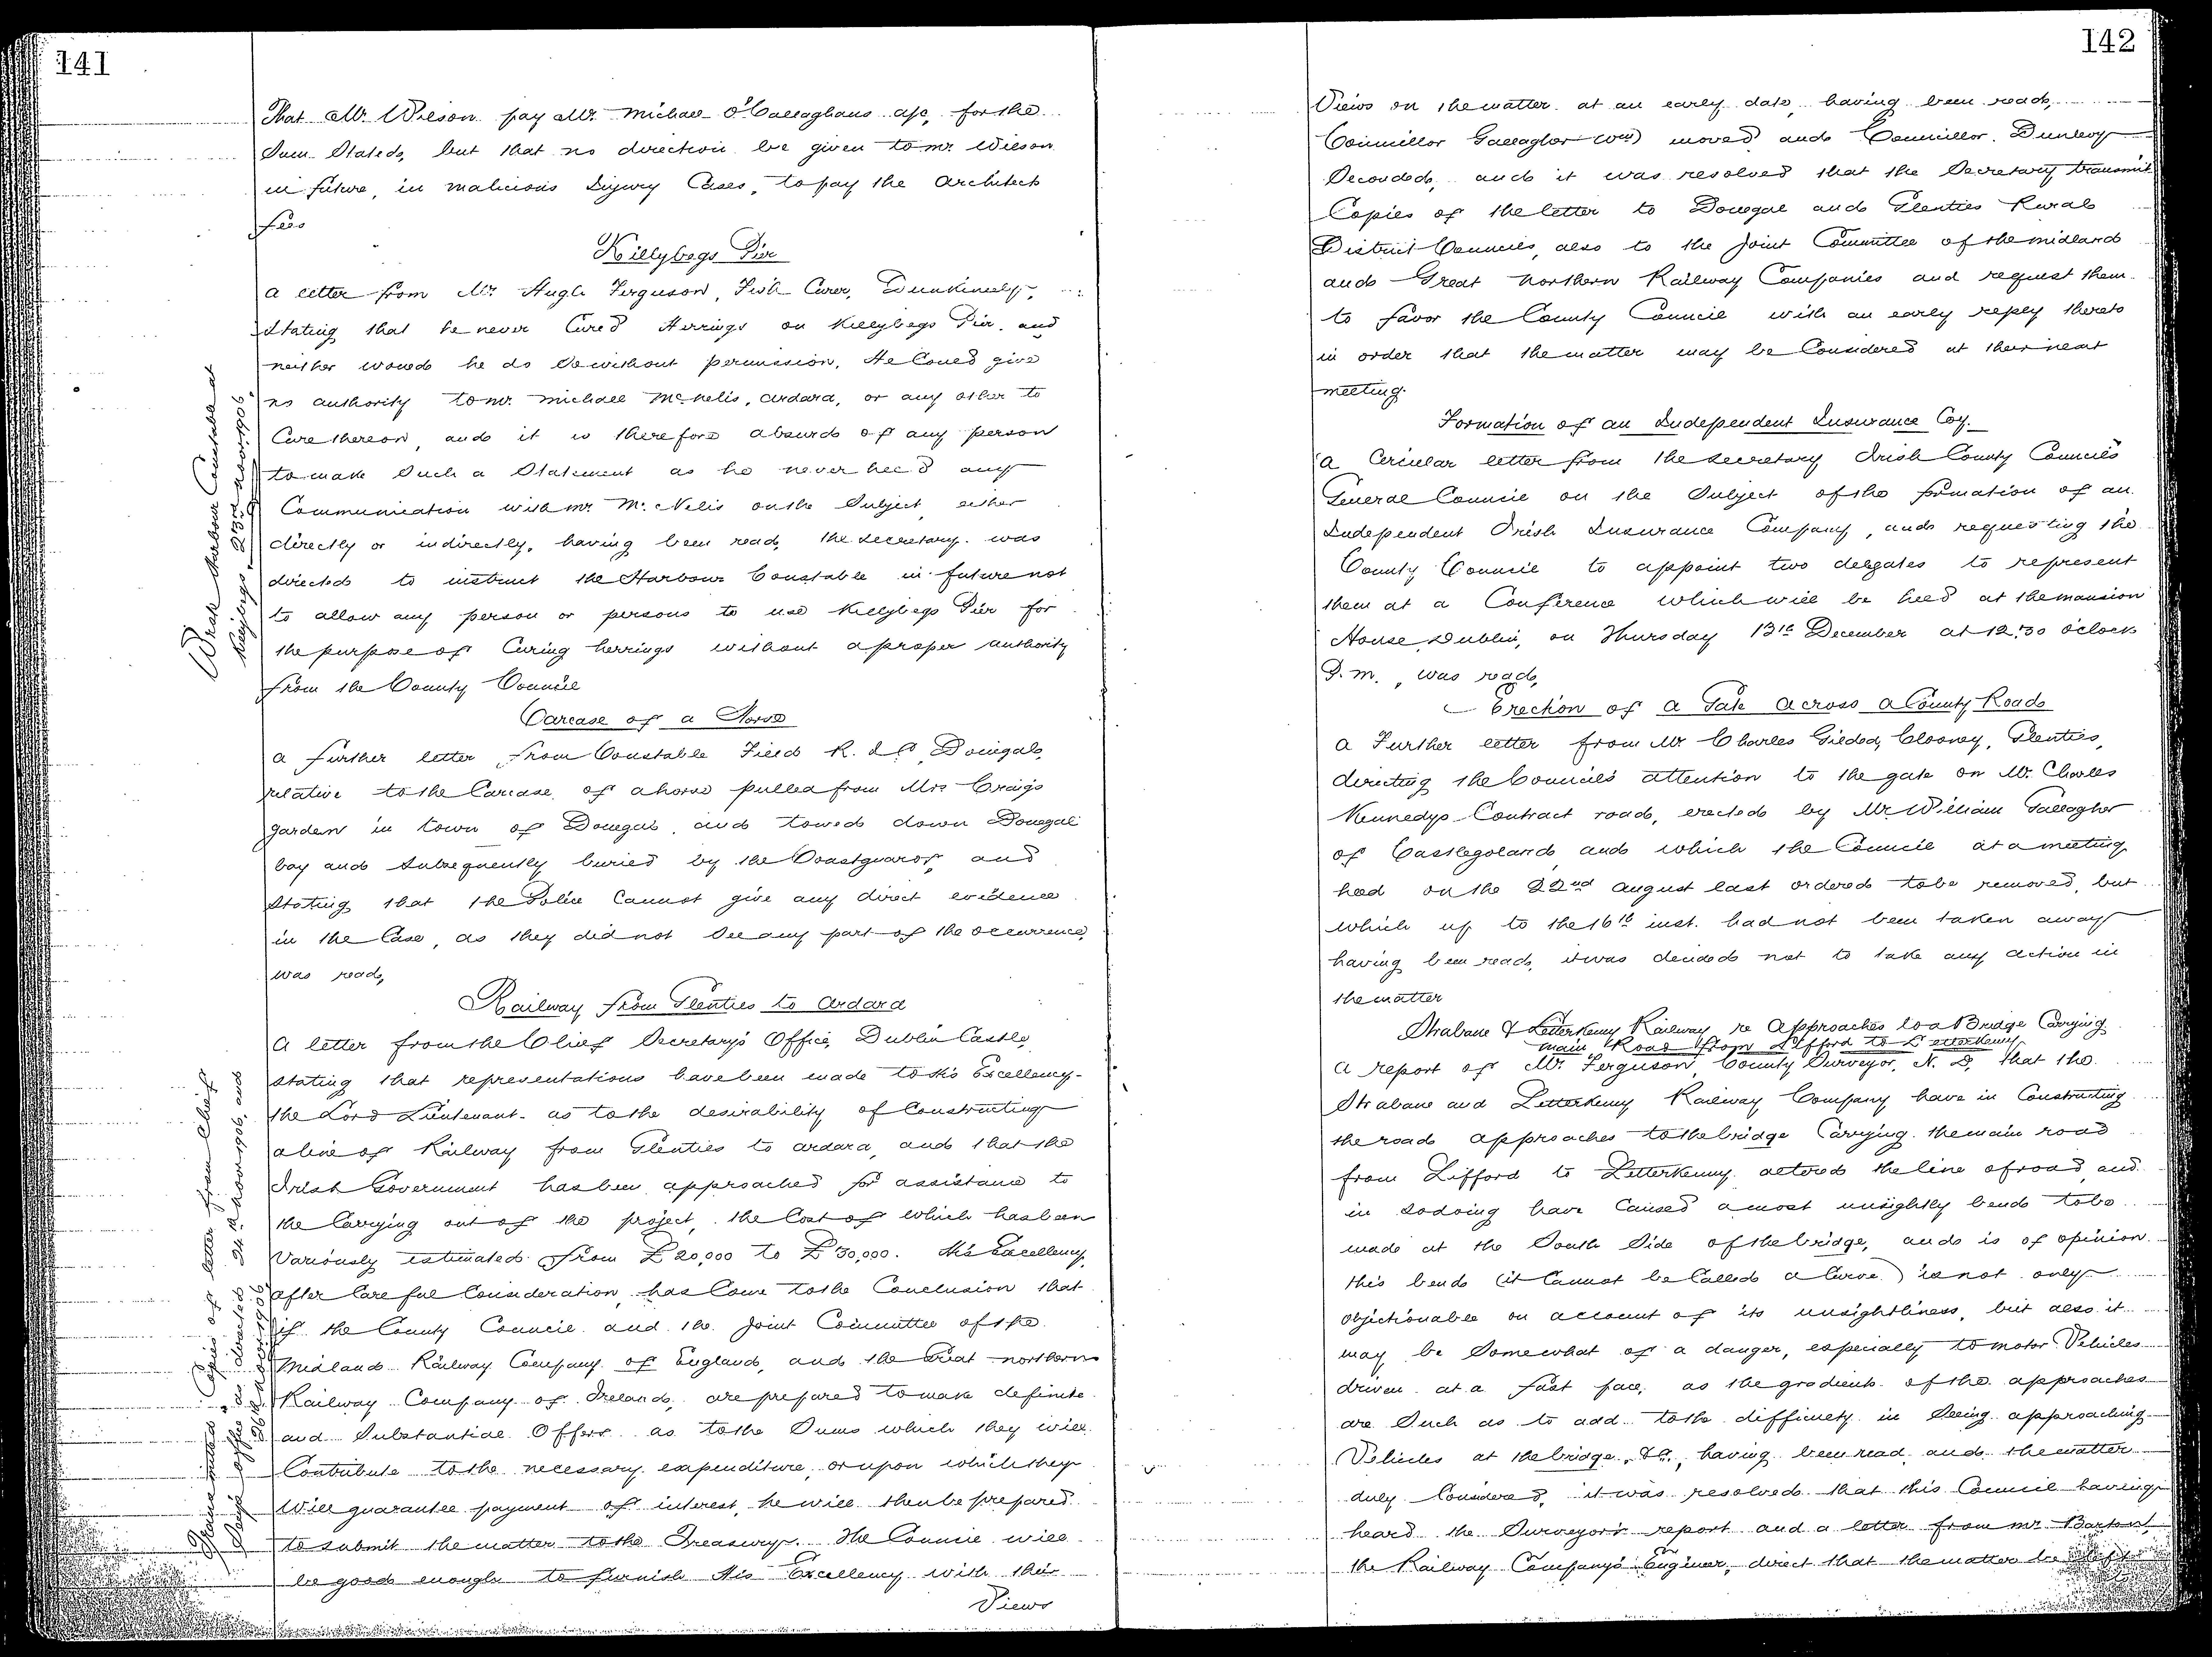 141
That Mr. Wilson pay Mr. Michael O'Callaghans a/c, for the
Sum Stated, but that no direction be given to Mr. Wilson
in future, in malicious Injury Cases, to pay the Architects
fees
Killybegs Pier
A letter from Mr. Hugh Ferguson, Fish Curer, Dunkineely,
Stating that he never Cured Herrings on Killybegs Pier, and
neither would he do so without permission. He Could give
no authority to Mr. Michael McNelis, Ardara, or any other to
Cure thereon, and it is therefore absurd of any person
to make Such a Statement as he never held any
Communication with Mr. McNelis on the Subject, either
directly or indirectly, having been read, the Secretary was
directed to instruct the Harbour Constable in future not
to allow any person or persons to use Killybegs Pier for
the purpose of Curing herrings without a proper authority
from the County Council
Wrote Harbour Constable at
Killybegs, 23rd Novr. 1906.
Carcase of a Horse
A further letter from Constable Field R.I.C. Donegal,
relative to the Carcase of a horse pulled from Mrs Craig's
garden in town of Donegal, and towed down Donegal
bay and Subsequently buried by the Coastguards, and
Stating that the Police Cannot give any direct evidence
in the Case, as they did not See any part of the occurrence,
was read,
Railway from Glenties to Ardara
A letter from the Chief Secretary's Office, Dublin Castle,
stating that representations have been made to His Excellency
the Lord Lieutenant as to the desirability of Constructing
a line of Railway from Glenties to Ardara, and that the
Irish Government has been approached for assistance to
the Carrying out of the project, the Cost of which has been
Variously estimated from £20,000 to £30,000. His Excellency,
after Careful Consideration, has Come to the Conclusion that
if the County Council and the Joint Committee of the
Midland Railway Company of England, and the Great Northern
Railway Company of Ireland, are prepared to make definite
and Substantial Offers as to the Sums which they will
Contribute to the necessary expenditure, or upon which they
Will guarantee payment of interest, he will then be prepared
to submit the matter to the Treasury. The Council will
be good enough to furnish His Excellency with their
Views
Copies of letter from Chief
Secy's Office as directed 24th Novr. 1906, and
26th Novr 1906
142
Views on the matter at an early date, having been read,
Councillor Gallagher (Wm) moved and Councillor Dunlevy
Seconded, and it was resolved that the Secretary transmit
Copies of the letter to Donegal and Glenties Rural
District Councils, also to the Joint Committee of the Midland
and Great Northern Railway Companies and request them
to favor the County Council with an early reply thereto
in order that the matter may be Considered at their next
meeting.
Formation of an Independent Insurance Coy.
A Circular letter from the Secretary Irish County Councils
General Council on the Subject of the formation of an
Independent Irish Insurance Company, and requesting the
County Council to appoint two delegates to represent
them at a Conference which will be held at the Mansion
House, Dublin, on Thursday 13th December at 12.30 o'clock
P.m., was read,
Erection of a Gate Across a County Road
A Further letter from Mr Charles Gildea, Clooney, Glenties,
directing the Council's attention to the gate on Mr. Charles
Kennedys Contract road, erected by Mr. William Gallagher
of Castlegoland, and which the Council at a meeting
held on the 22nd August last ordered to be removed, but
which up to the 16th inst. had not been taken away
having been read, it was decided not to take any action in
the matter
Strabane & Letterkenny Railway re Approaches to a Bridge Carrying
Main Road from Lifford to Letterkenny
A report of Mr. Ferguson, County Surveyor, N. D. that the
Strabane and Letterkenny Railway Company have in Constructing
the road approaches to the bridge Carrying the main road
from Lifford to Letterkenny altered the line of road, and
in so doing have Caused a most unsightly bend to be
made at the South Side of the bridge, and is of opinion
this bend (it Cannot be Called a Curve) is not only
Objectionable on account of its unsightliness, but also it
may be Somewhat of a danger, especially to motor Vehicles
driven at a fast pace, as the gradients of the approaches
are Such as to add to the difficulty in Seeing approaching
Vehicles at the bridge, &c., having been read and the matter
duly Considered, it was resolved that this Council having
heard the Surveyor's report and a letter from Mr. Barton,
the Railway Company's Engineer, direct that the matter be left